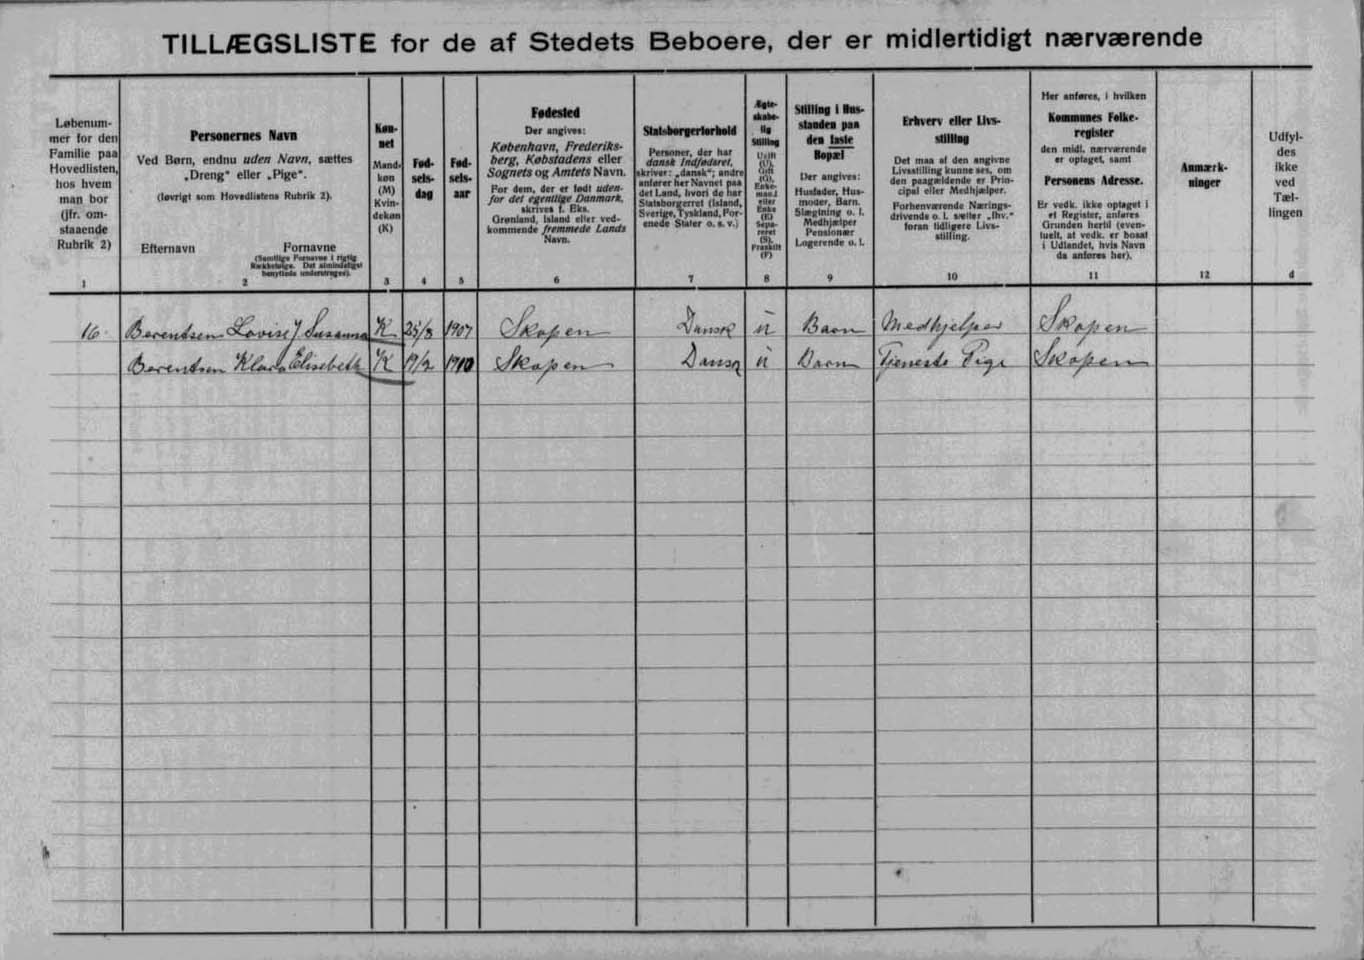 TILLÆGSLISTE for de af Stedets Beboere, der er midlertidigt nærværende
Løbenum-
mer for den
Familie paa
Hovedlisten,
hos hvem
man bor
(jfr. om-
staaende
Rubrik 2)
1
Personernes Navn
Ved Børn, endnu uden Navn, sættes
„Dreng" eller „Pige".
(Iøvrigt som Hovedlistens Rubrik 2).
Efternavn Fornavne
(Samtlige Fornavne i rigtig
Rækkefølge. Det almindeligst
benyttede understreges).
2
Køn-
net
Mand-
køn
(M)
Kvin-
dekøn
(K)
3
Fød-
sels-
dag
4
Fød-
sels-
aar
5
Fødested
Der angives:
København, Frederiks-
berg, Købstadens eller
Sognets og Amtets Navn.
For dem, der er født uden-
for det egentlige Danmark,
skrives f. Eks.
Grønland, Island eller ved-
kommende fremmede Lands
Navn.
6
Statsborgerforhold
Personer, der har
dansk Indfødsret,
skriver: „dansk"; andre
anfører her Navnet paa
det Land, hvori de har
Statsborgerret (Island,
Sverige, Tyskland, For-
enede Stater o. s. v.)
7
Ægte-
skabe-
lig
Stilling
Ugift
(U),
Gift
(G),
Enke-
mand
eller
Enke
(E)
Sepa-
reret
(S),
Fraskilt
(F)
8
Stilling i Hus-
standen paa
den faste
Bopæl
Der angives:
Husfader, Hus-
moder, Barn.
Slægtning o. l.
Medhjælper
Pensionær
Logerende o. l.
9
Erhverv eller Livs-
stilling
Det maa af den angivne
Livsstilling kunne ses, om
den paagældende er Prin-
cipal eller Medhjælper.
Forhenværende Nærings-
drivende o. l. sætter „fhv."
foran tidligere Livs-
stilling.
10
Her anføres, i hvilken
Kommunes Folke-
register
den midl. nærværende
er optaget, samt
Personens Adresse.
Er vedk. ikke optaget i
et Register, anføres
Grunden hertil (even-
tuelt, at vedk. er bosat
i Udlandet, hvis Navn
da anføres her).
11
Anmærk-
ninger
12
Udfyl-
des
ikke
ved
Tæl-
lingen
d
16 Berentsen Lovise J Susanna K 25/8 1907 Skopen Dansk ü Barn Medhjelper Skopen
Berentsen Klara Elisebeth K 19/2 1910 Skopen Dansk ü Barn Tjeneste Pige Skopen